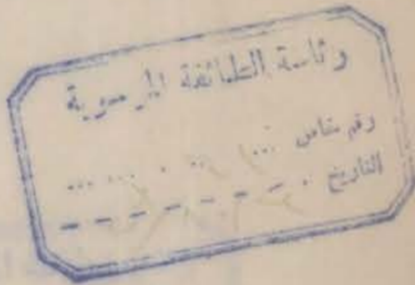 رئاسة الطائفة الموسوية
رقم خاص ... ... . ... ...
التاريخ . - - - - - - -